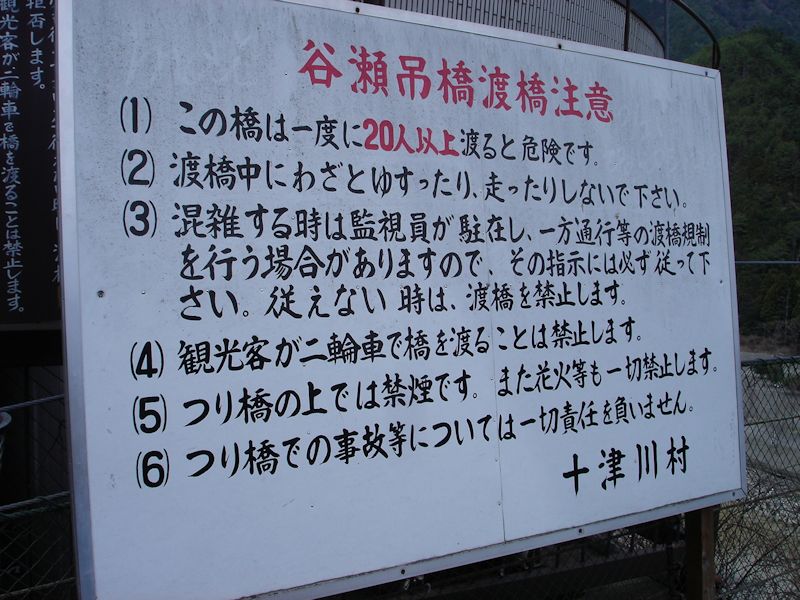 谷瀬吊橋渡橋注意
(1) この橋は一度に20人以上渡ると危険です。
(2) 渡橋中にわざとゆすったり、走ったりしないで下さい。
(3) 混雑する時は監視員が駐在し、一方通行等の渡橋規制
を行う場合がありますので、その指示には必ず従って下
さい。従えない時は、渡橋を禁止します。
(4) 観光客が二輪車で橋を渡ることは禁止します。
(5) つり橋の上では禁煙です。また花火等も一切禁止します。
(6) つり橋での事故等については一切責任を負いません。
十津川村
観光客が二輪車で橋を渡ることは禁止します。
拒否します。